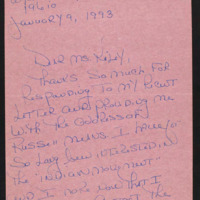 19610
January 9, 1993
Dear Mr. Kiley,
Thanks so much for
responding to my recent
letter and providing me
with the addressor
Russell Means. I have
so long been interested in
the "Indian Movement"
and I note now that I
the